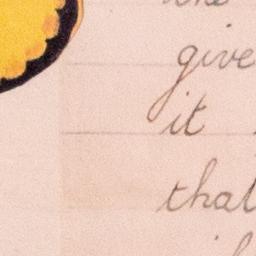 give
it
that